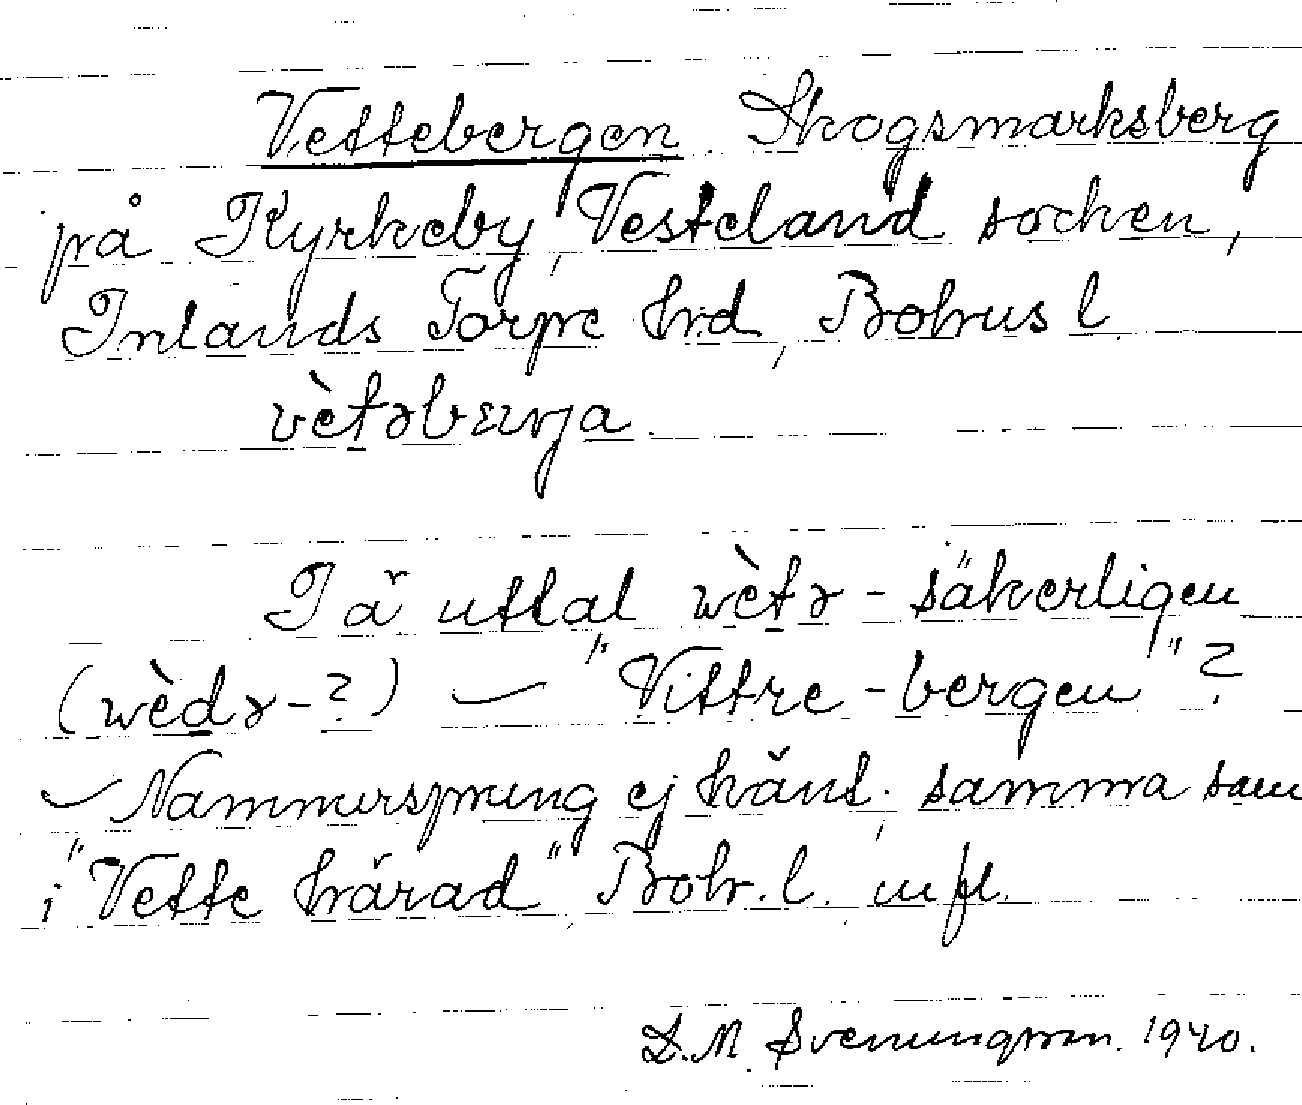 Vettebergen. Skogsmarksberg
på Kyrkeby, Vesteland socken,
Inlands Torpe hrd, Bohus l.
vètəbærja.
I ä uttal wètə- säkerligen
(wèdə-?) — "Vittre-bergen"?
— Namnursprung ej känt; samma som
i "Vette härad", Boh. l. m fl.
D. M. Svenungsson. 1940.